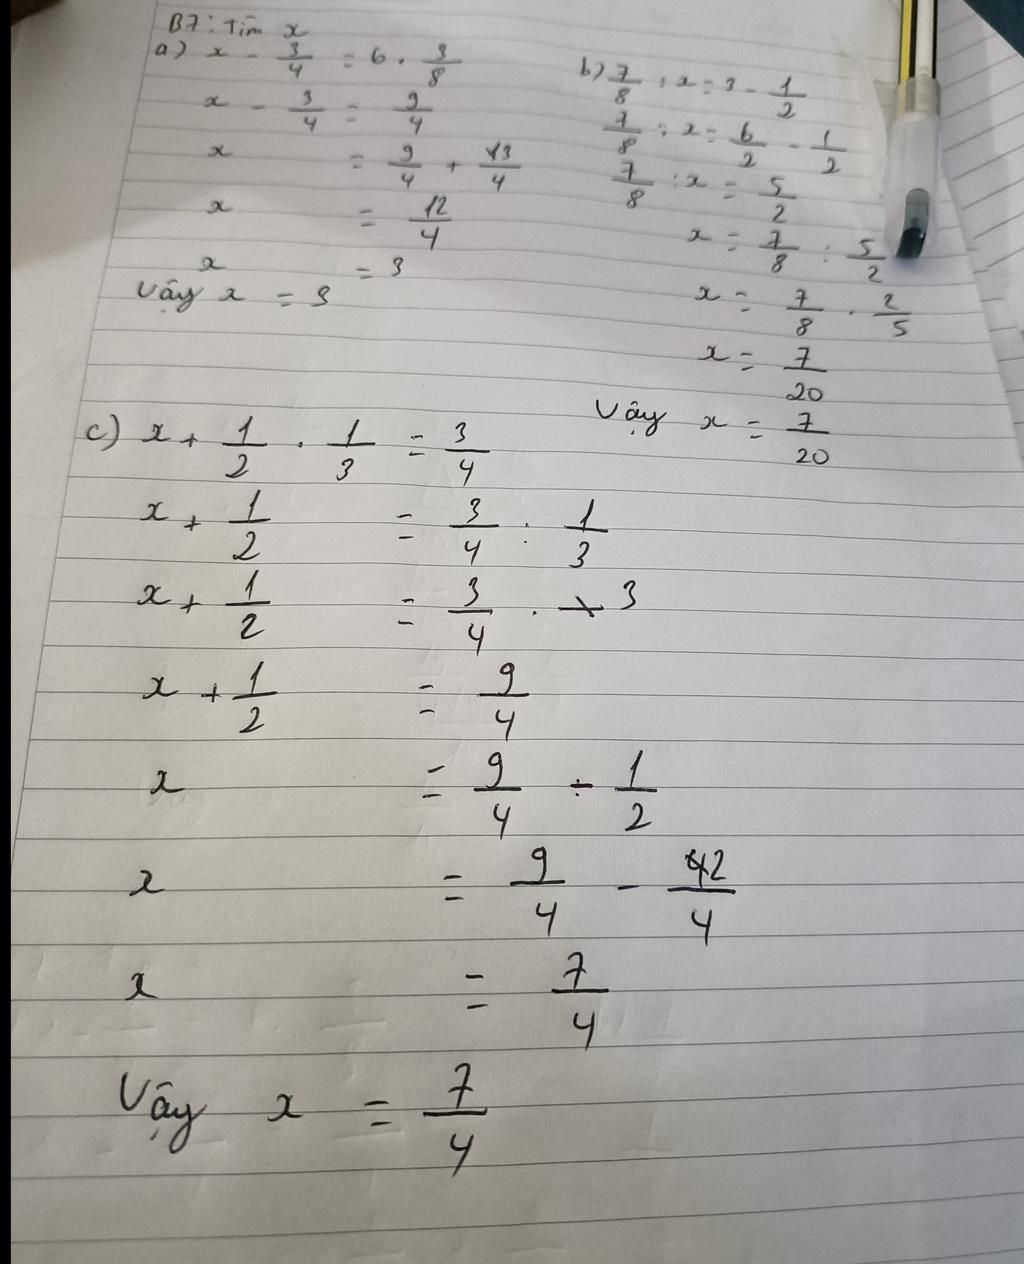 B7: Tìm x
a) x - 3/4 = 6 . 3/8
x - 3/4 = 9/4
x = 9/4 + 3/4
x = 12/4
x = 3
Vậy x = 3
b) 7/8 : x = 3 - 1/2
7/8 : x = 6/2 - 1/2
7/8 : x = 5/2
x = 7/8 : 5/2
x = 7/8 . 2/5
x = 7/20
Vậy x = 7/20
c) x + 1/2 . 1/3 = 3/4
x + 1/2 = 3/4 : 1/3
x + 1/2 = 3/4 . 3
x + 1/2 = 9/4
x = 9/4 - 1/2
x = 9/4 - 2/4
x = 7/4
Vậy x = 7/4